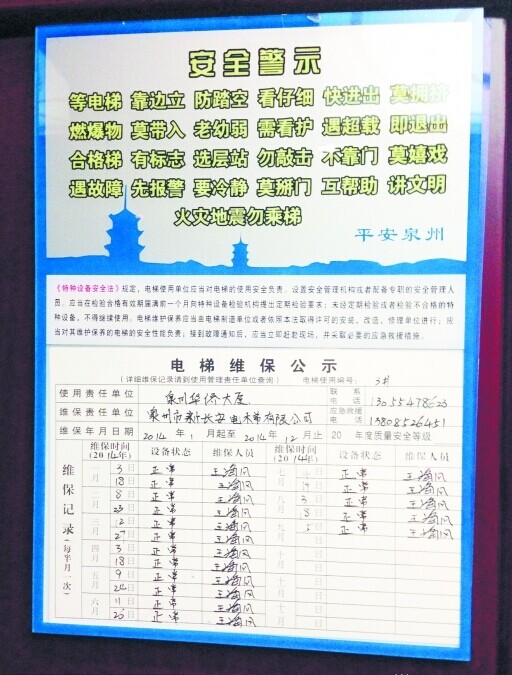 安全警示
等电梯 靠边立 防踏空 看仔细 快进出 莫拥挤
燃爆物 莫带入 老幼弱 需看护 遇超载 即退出
合格梯 有标志 选层站 勿敲击 不靠门 莫嬉戏
遇故障 先报警 要冷静 莫掰门 互帮助 讲文明
火灾地震勿乘梯
平安泉州
《特种设备安全法》规定，电梯使用单位应当对电梯的使用安全负责，设置安全管理机构或者配备专职的安全管理人
员，应当在检验合格有效期届满前一个月向特种设备检验机构提出定期检验要求；未经定期检验或者检验不合格的特
种设备，不得继续使用。电梯维护保养应当由电梯制造单位或者依照本法取得许可的安装、改造、修理单位进行；应
当对其维护保养的电梯的安全性能负责；接到故障通知后，应当立即赶赴现场，并采取必要的应急救援措施。
电梯维保公示
(详细维保记录请到使用管理责任单位查询) 电梯使用编号： 3#
使用责任单位 泉州华侨大厦 联系电话 13055478623
维保责任单位 泉州市新长安电梯有限公司 应急救援电话 13808526451
维保年月日期 2014年1月起至2014年12月止 20 年度质量安全等级
维保记录(每半月一次)
维保时间(2014年) 设备状态 维保人员 维保时间(2014年) 设备状态 维保人员
一月 3日 正常 王海风 七月 日 正常 王海风
18日 正常 王海风 日 正常 王海风
二月 8日 正常 王海风 八月 3日 正常 王海风
23日 正常 王海风 8日 正常 王海风
三月 12日 正常 王海风 九月 5日 正常 王海风
27日 正常 王海风 日
四月 3日 正常 王海风 十月 日
18日 正常 王海风 日
五月 9日 正常 王海风 十一月 日
24日 正常 王海风 日
六月 11日 正常 王海风 十二月 日
25日 正常 王海风 日